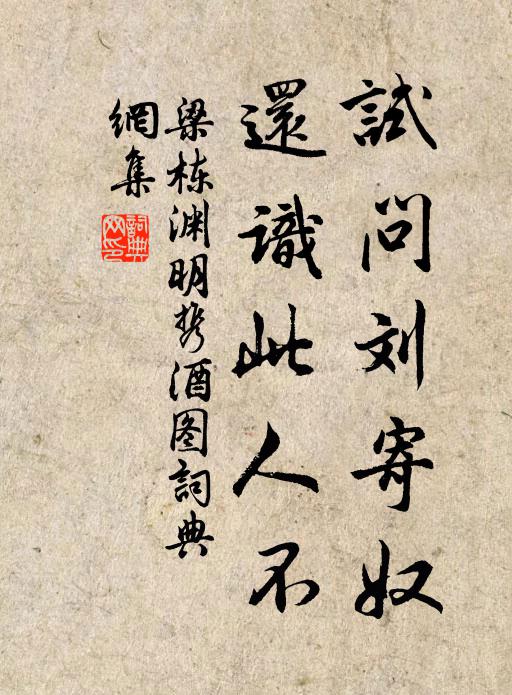 試问刘寄奴
還識此人不
梁栋渊明携酒图詞典
網集
詞典
网印